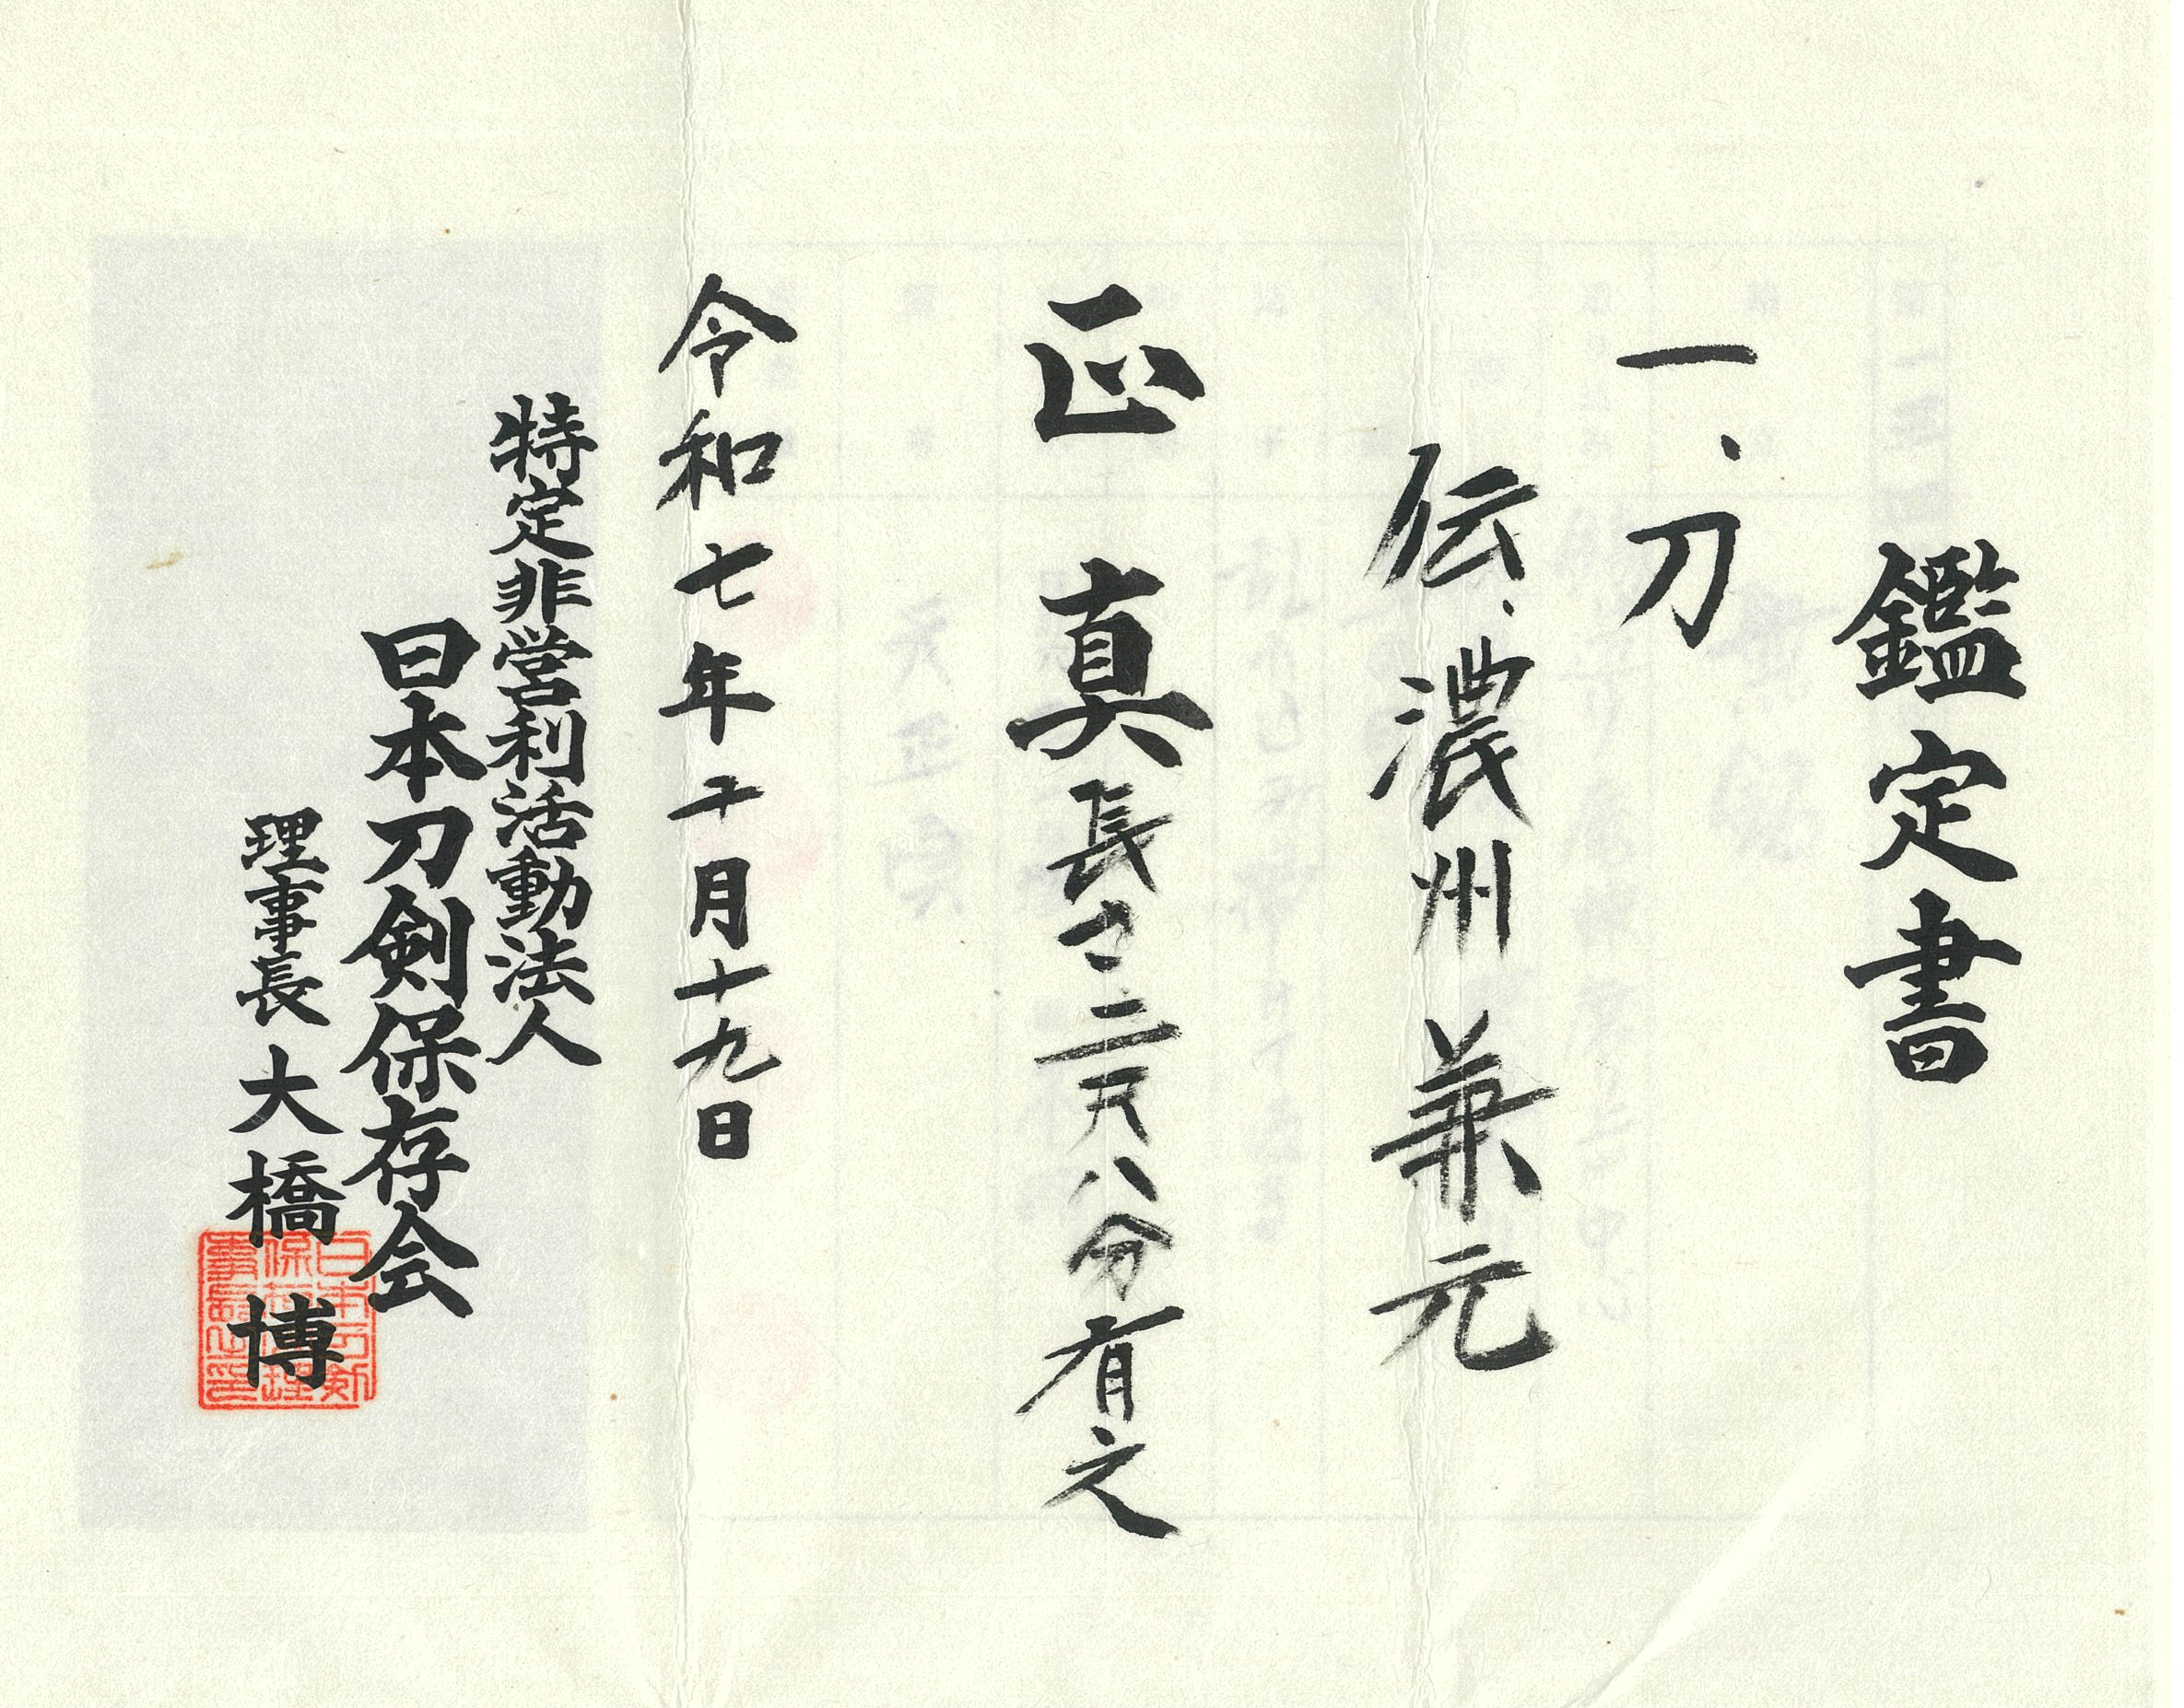 鑑定書
一、刀
伝、濃州 兼元
正真 長さ二尺八分有之
令和七年十月十九日
特定非営利活動法人
日本刀剣保存会
理事長 大橋 博
日本刀剣
保存会理
事長之印